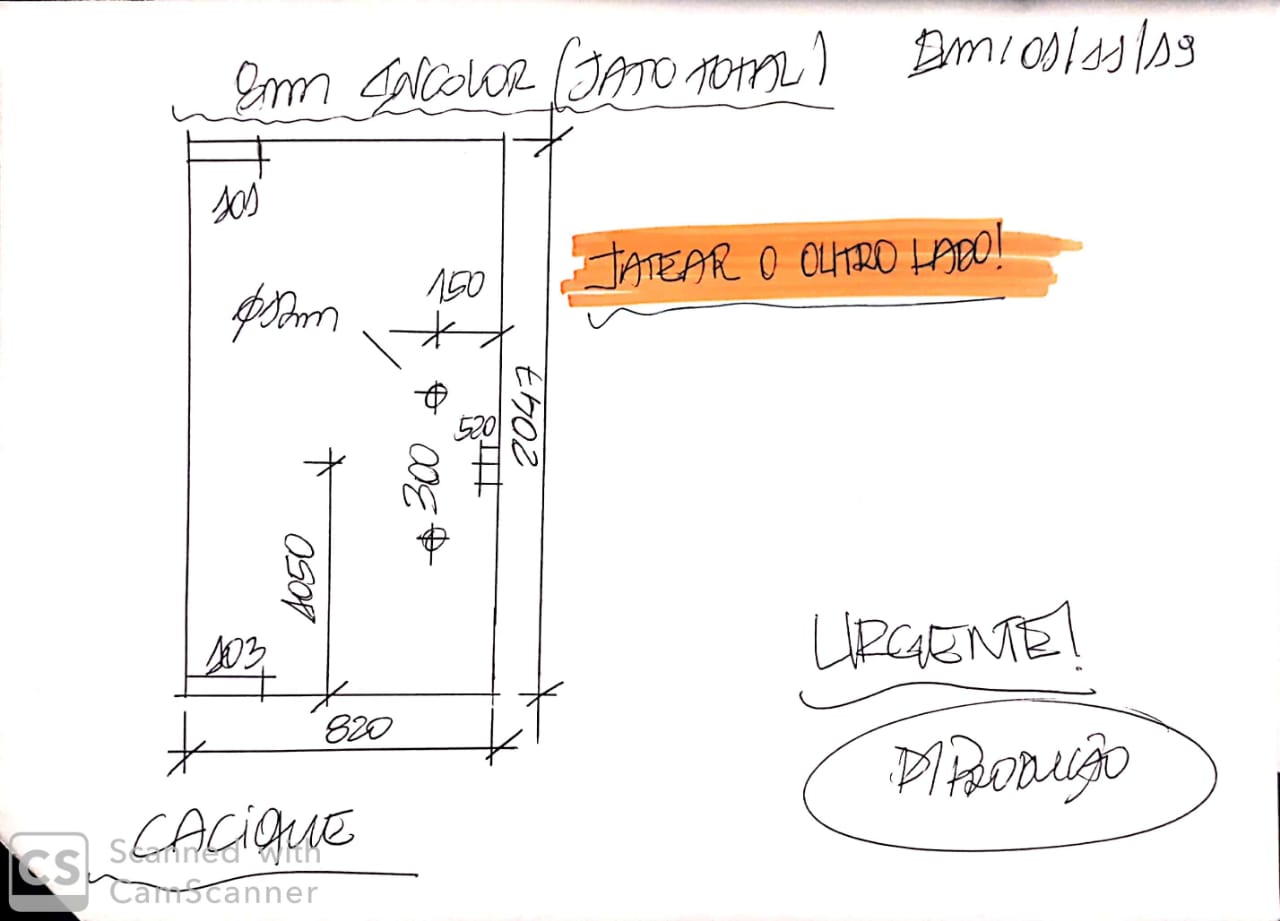 8mm INCOLOR (JATO TOTAL)
EM: 01/11/19
101
JATEAR O OUTRO LADO!
150
ϕ12mm
2047
520
300
1050
103
820
URGENTE!
P/ PRODUÇÃO
CACIQUE
CS Scanned with
CamScanner